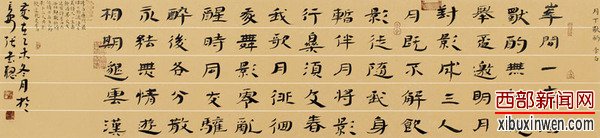 月下獨酌 李白
花間一
獨酌無
舉盃邀明月
對影成三人
月既不解飲
影徒隨我身
暫伴月將影
行樂須及春
我歌月徘徊
我舞影零亂
醒時同交驩
醉後各分散
永結無情遊
相期邈雲漢
乙未冬月於
西部新闻网
xibuxinwen.com